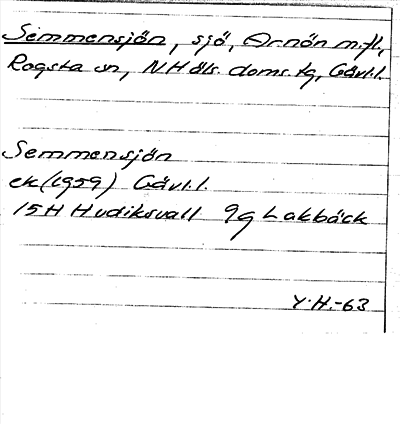 Semmensjön, sjö, Arnön m.fl.,
Rogsta sn, N Häls. doms. tg, Gävl.l.
Semmensjön
ek (1959) Gävl.l.
15H Hudiksvall 9g Lakbäck
Y.H.-63